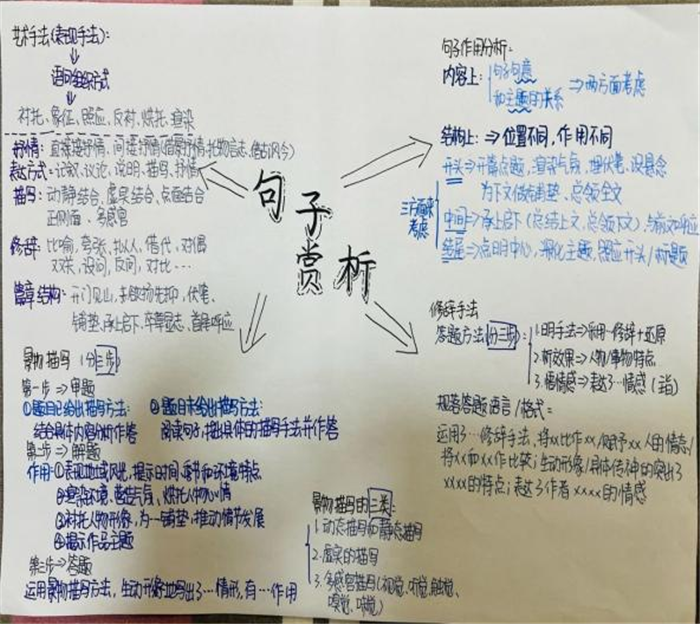 艺术手法(表现手法):
语句组织方式
衬托、象征、照应、反衬、烘托、渲染
抒情: 直接抒情、间接抒情(借景抒情、托物言志、借古讽今)
表达方式: 记叙、议论、说明、描写、抒情
描写: 动静结合、虚实结合、点面结合
正侧面、多感官
修辞: 比喻、夸张、拟人、借代、对偶
双关、设问、反问、对比…
篇章结构: 开门见山、欲扬先抑、伏笔、
铺垫、承上启下、卒章显志、首尾呼应
句子
赏析
句子作用分析:
内容上: 句子句意
和主题的关系 ⇒两方面考虑
结构上: ⇒位置不同,作用不同
三方面来考虑
开头⇒开篇点题,渲染气氛,埋伏笔,设悬念
为下文做铺垫,总领全文
中间⇒承上启下(总结上文,总领下文),与前文呼应
结尾⇒点明中心,深化主题,照应开头/标题
景物描写(分三步)
第一步⇒审题
①题目已给出描写方法:
结合具体内容分析作答
②题目未给出描写方法:
阅读句子,指出具体的描写手法并作答
第二步⇒解题
作用:①表现地域风光,提示时间、季节和环境特点
②渲染环境、营造气氛,烘托人物心情
③衬托人物形象,为…铺垫,推动情节发展
④揭示作品主题
第三步⇒答题
运用景物描写方法,生动形象地写出了…情形,有…作用
景物描写的三类:
1.动态描写和静态描写
2.虚实的描写
3.多感官描写(视觉、听觉、触觉、
嗅觉、味觉)
修辞手法
答题方法(分三步):
1.明手法⇒利用…修辞+还原
2.析效果⇒人物/事物特点
3.悟情感⇒表达了…情感(主旨)
规范答题语言/格式:
运用了…修辞手法,将xx比作xx/赋予xx人的情态/
将xx和xx作比较;生动形象/具体传神的突出了
xxxx的特点;表达了作者xxxx的情感